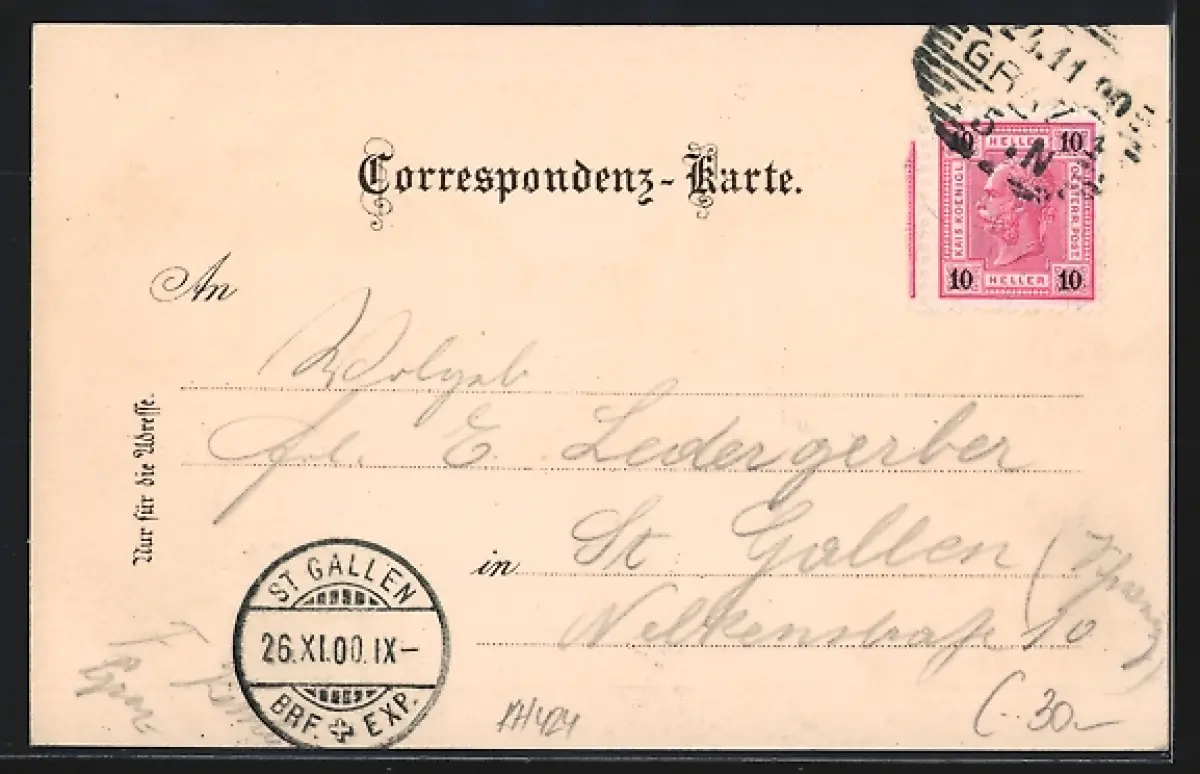 24.11.00
GRAZ
10 HELLER 10
KAIS. KOENIGL.
OESTERR. POST
10 HELLER 10
Correspondenz-Karte.
An
Wolgeb
frl. E. Ledergerber
in St Gallen (Schweiz)
Nelkenstraße 10
Nur für die Adresse.
ST. GALLEN
26.XI.00.IX-
BRF. EXP.
(-30-